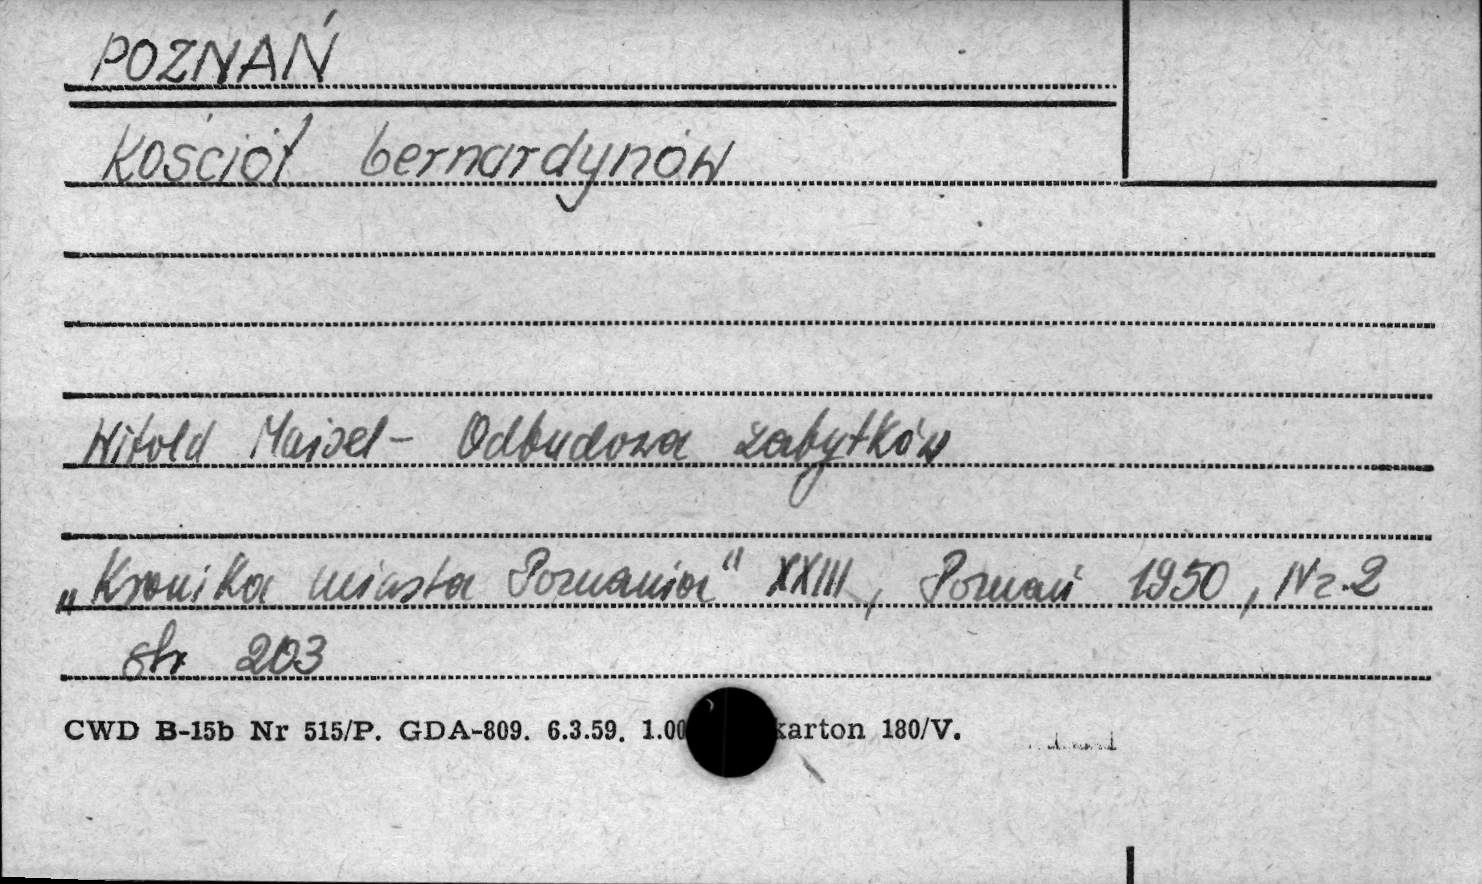 POZNAŃ
Kościół bernardynów
Witold Maisel - Odbudowa zabytków
„Kronika miasta Poznania" XXIII, Poznań 1950, Nr. 2
str 203
CWD B-15b Nr 515/P. GDA-809. 6.3.59. 1.00 karton 180/V.